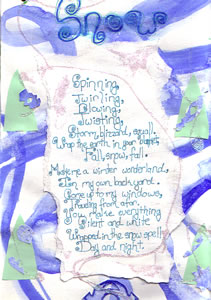 Snow
Spinning,
Twirling,
Blowing,
Twisting,
Storm, blizzard, squall.
Wrap the earth in your
Fall, snow, fall.
Make me a winter wonderland,
In my own back yard.
Come up to my windows,
You make everything
Silent and white
Wrapped in the snow spell,
Day and night.